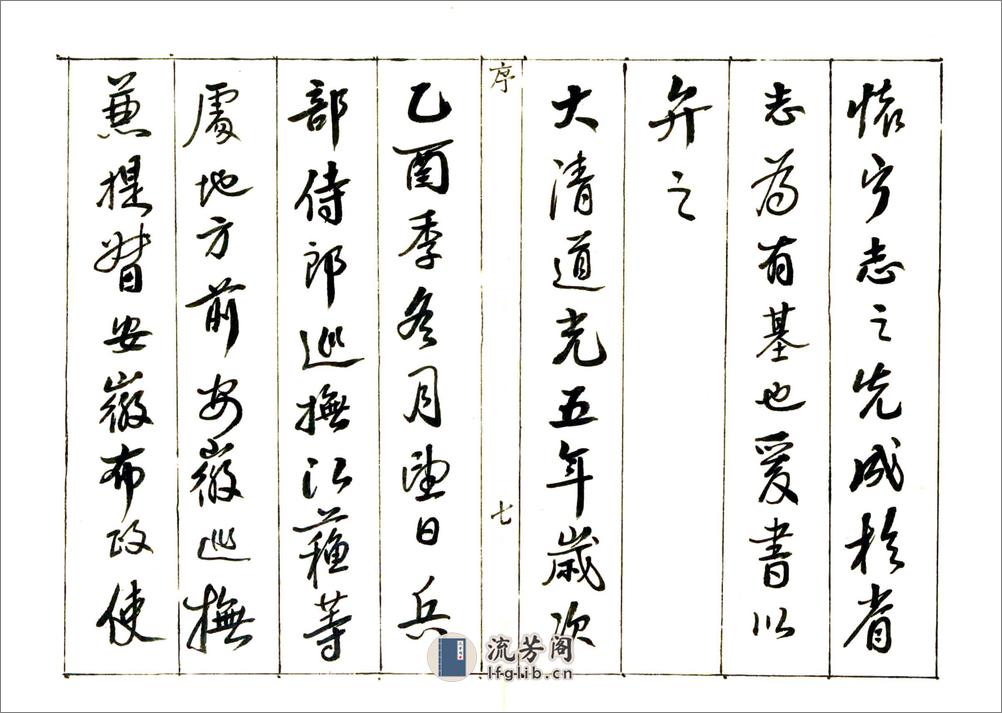 懷宁志之先成於省
志為有基也爰書以
弁之
大清道光五年歲次
序
七
乙酉季冬月望日兵
部侍郎巡撫江蘇等
處地方前安徽巡撫
兼提督安徽布政使
流芳阁
lfglib.cn